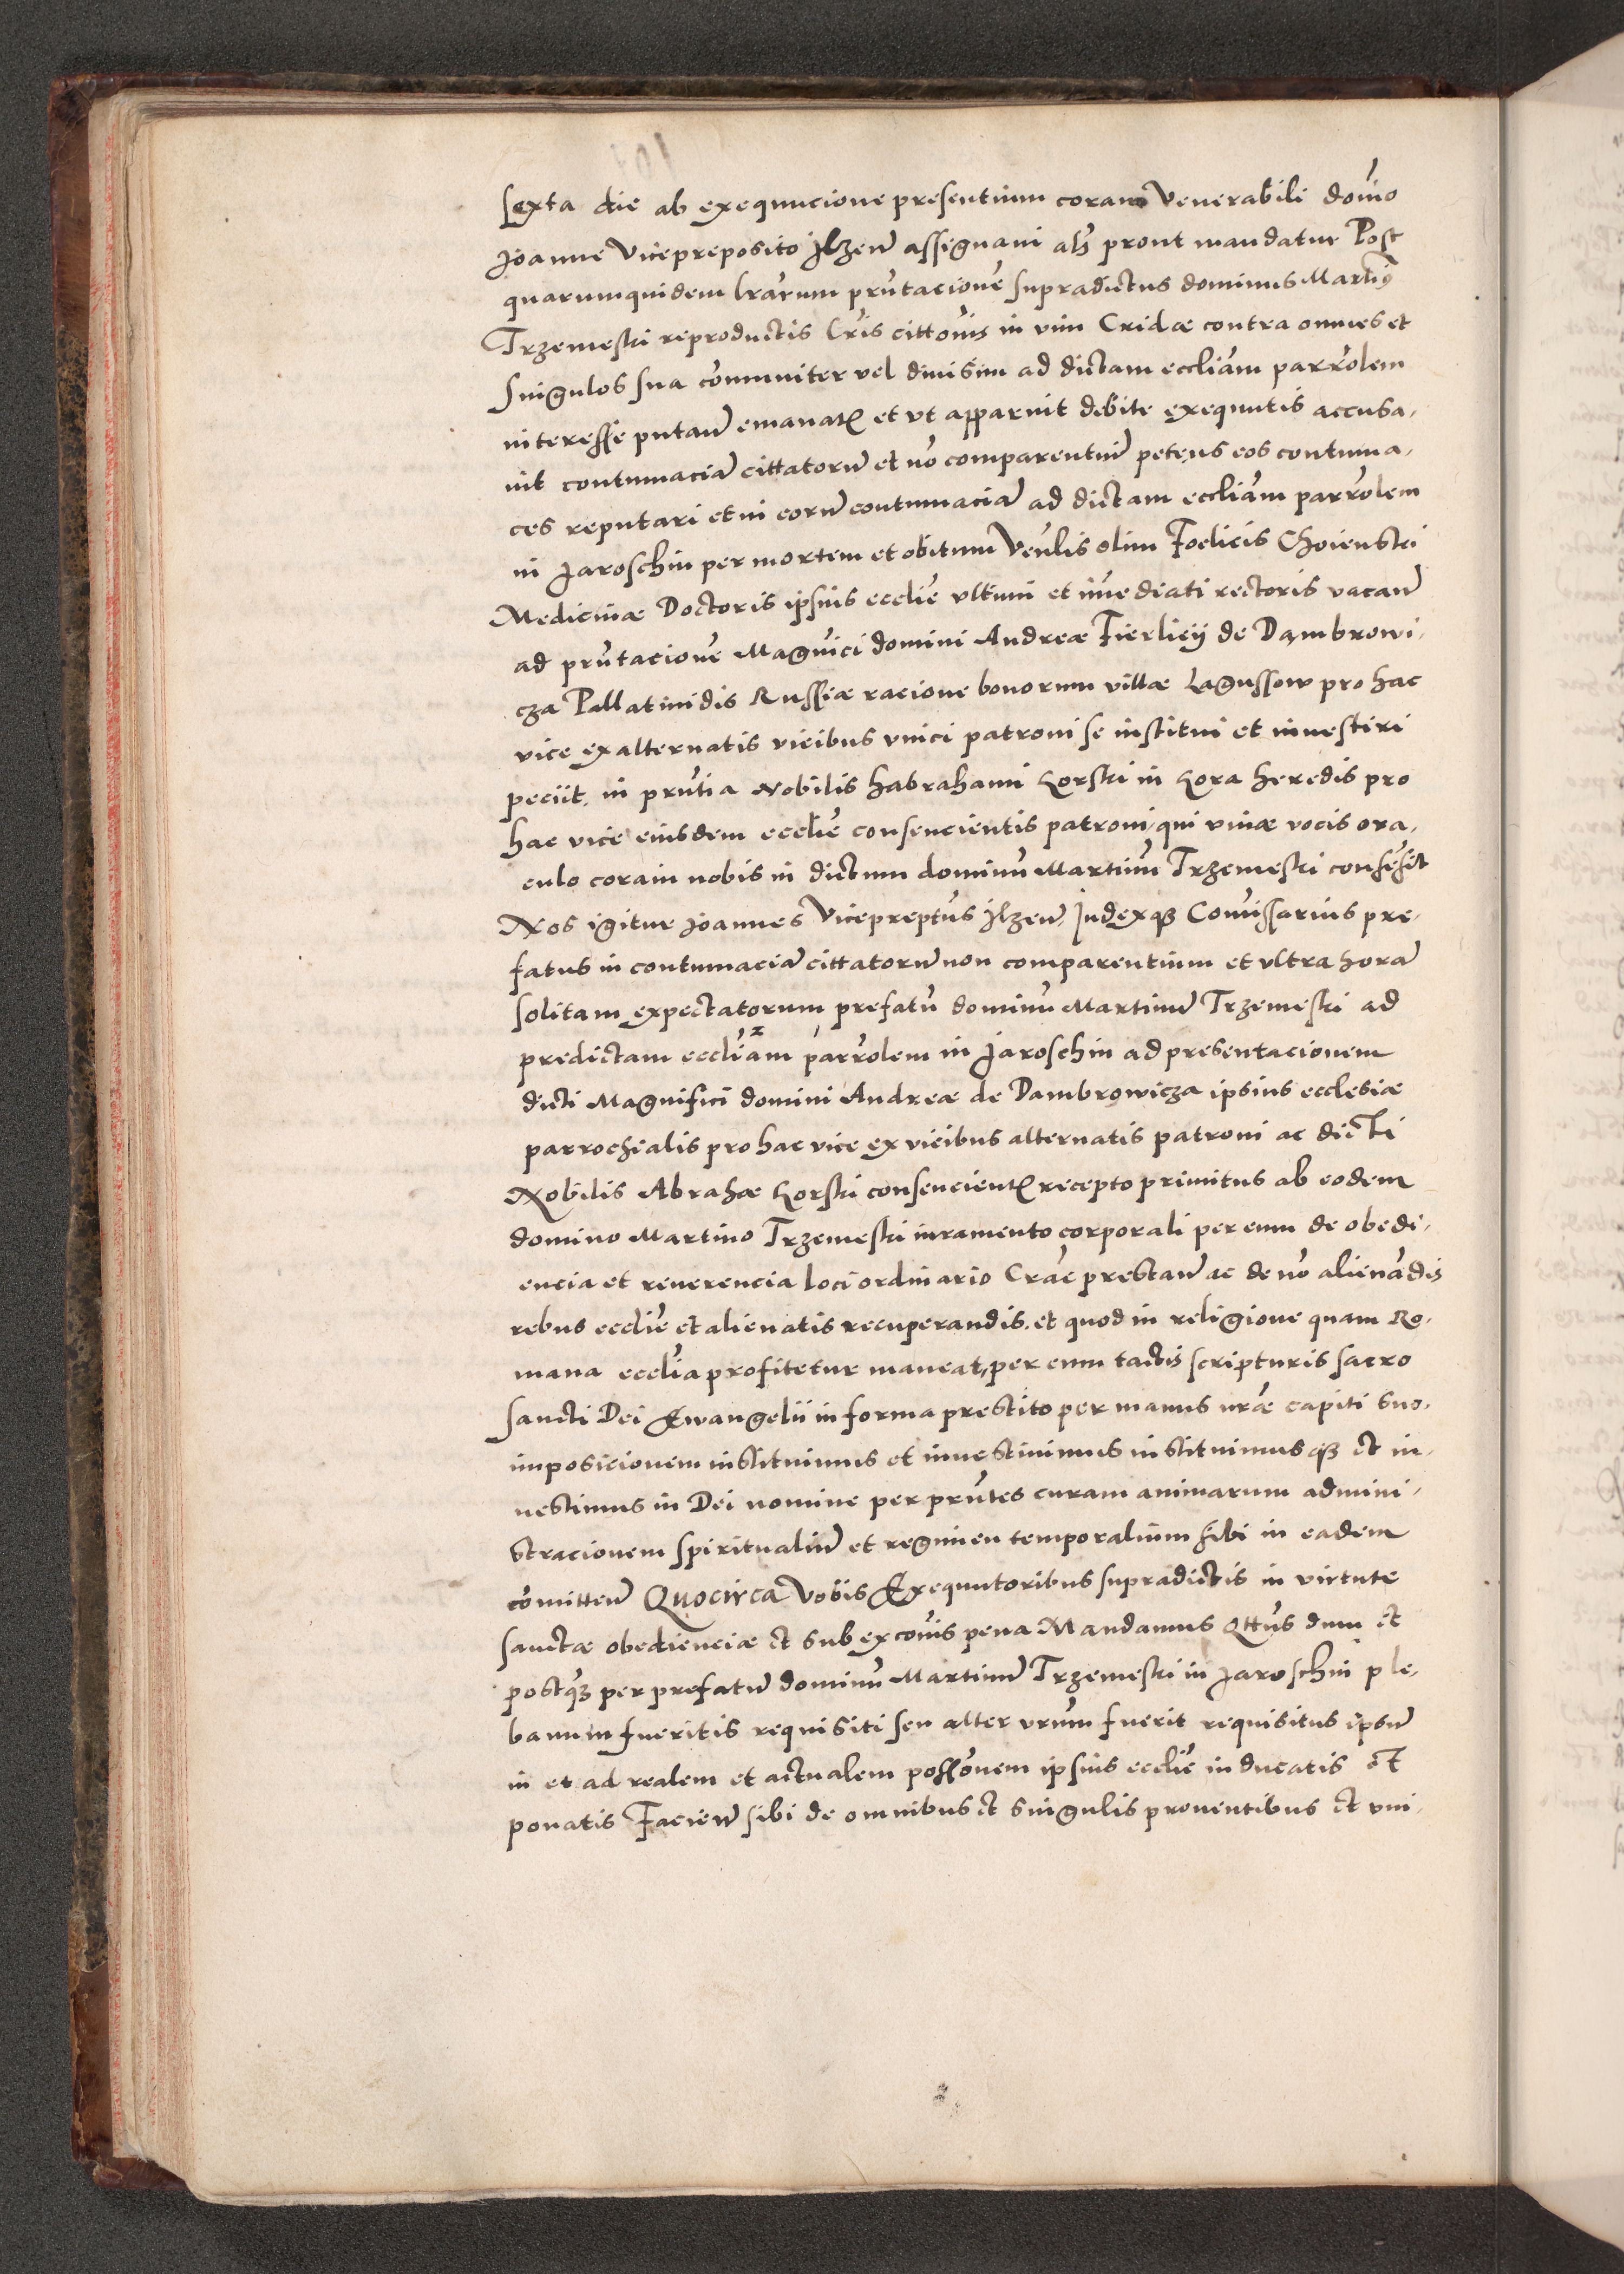 sexta die ab exequucione presentium coram Venerabili dom̃o
Joanne Vicepreposito Jlzen̄ assignavi als̄ prout mandatur Post
quarumquidem lr̃arum pñtacionē supradictus dominus Martin9
Trzemeski reproductis lr̃is cittonis in vim Cridæ contra omnes et
singulos sua cōmuniter vel divisim ad dictam eccl̃iam parr̃olem
interesse putan̄ emanatꝭ et vt apparuit debite exequutis accusa,
vit contumaciā cittatorū et nō comparentiū petens eos contuma,
ces reputari et in eorū contumaciā ad dictam eccl̃iam parr̃olem
in Jaroschin per mortem et obitum Veñlis olim Foelicis Choienski
Medicinæ Doctoris ipsius eccl̃ie vltimi et īmediati rectoris vacan̄
ad pñtacionē Magnĩci domini Andreæ Fierlicÿ de Dambrowi,
cza Pallatinidis Russiæ racione bonorum villæ Lagussow pro hac
vice ex alternatis vicibus vnici patroni se institui et investiri
peciit, in pñtia Nobilis Habrahami Gorski in Gora heredis pro
hac vice eiusdem eccl̃ie consencientis patroni, qui vivæ vocis ora,
culo coram nobis in dictum dominū Martinū Trzemeski consēsit
Nos igitur Joannes Vicepreptus Jlzen̄, Judexqȝ Com̃issarius pre,
fatus in contumaciā cittatorū non comparentium et vltra horā
solitam expectatorum prefatū dominū Martinū Trzemeski ad
predictam eccl̃iam parr̃olem in Jaroschin ad presentacionem
dicti Magnifici domini Andreæ de Dambrowicza ipsius ecclesiæ
parrochialis pro hac vice ex vicibus alternatis patroni ac dicti
Nobilis Abrahæ Gorski consencientꝭ recepto primitus ab eodem
domino Martino Trzemeski iuramento corporali per eum de obedi,
encia et reverencia loci ordinario Crac̄ prestan̄ ac de nō alienādis
rebus eccl̃ie et alienatis recuperandis, et quod in religione quam Ro,
mana eccl̃ia profitetur maneat, per eum tactis scripturis sacro
sancti Dei Ewangelii in forma prestito per manus nr̃æ capiti suo,
imposicionem instituimus et investivimus instituimusqȝ et in,
vestimus in Dei nomine per pñtes curam animarum admini,
stracionem spiritualiū et regimen temporalium sibi in eadem
cōmitten̄ Quocirca Vobis Exequutoribus supradictis in virtute
sanctæ obedienciæ et sub excōnis pena Mandamus Qttus dum et
postqȝ per prefatū dominū Martinū Trzemeski in Jaroschin ple,
banum fueritis requisiti seu alter vr̃um fuerit requisitus ipsū
in et ad realem et actualem poss̃onem ipsius eccl̃ie inducatis et
ponatis Facien̄ sibi de omnibus et singulis proventibus et vni,